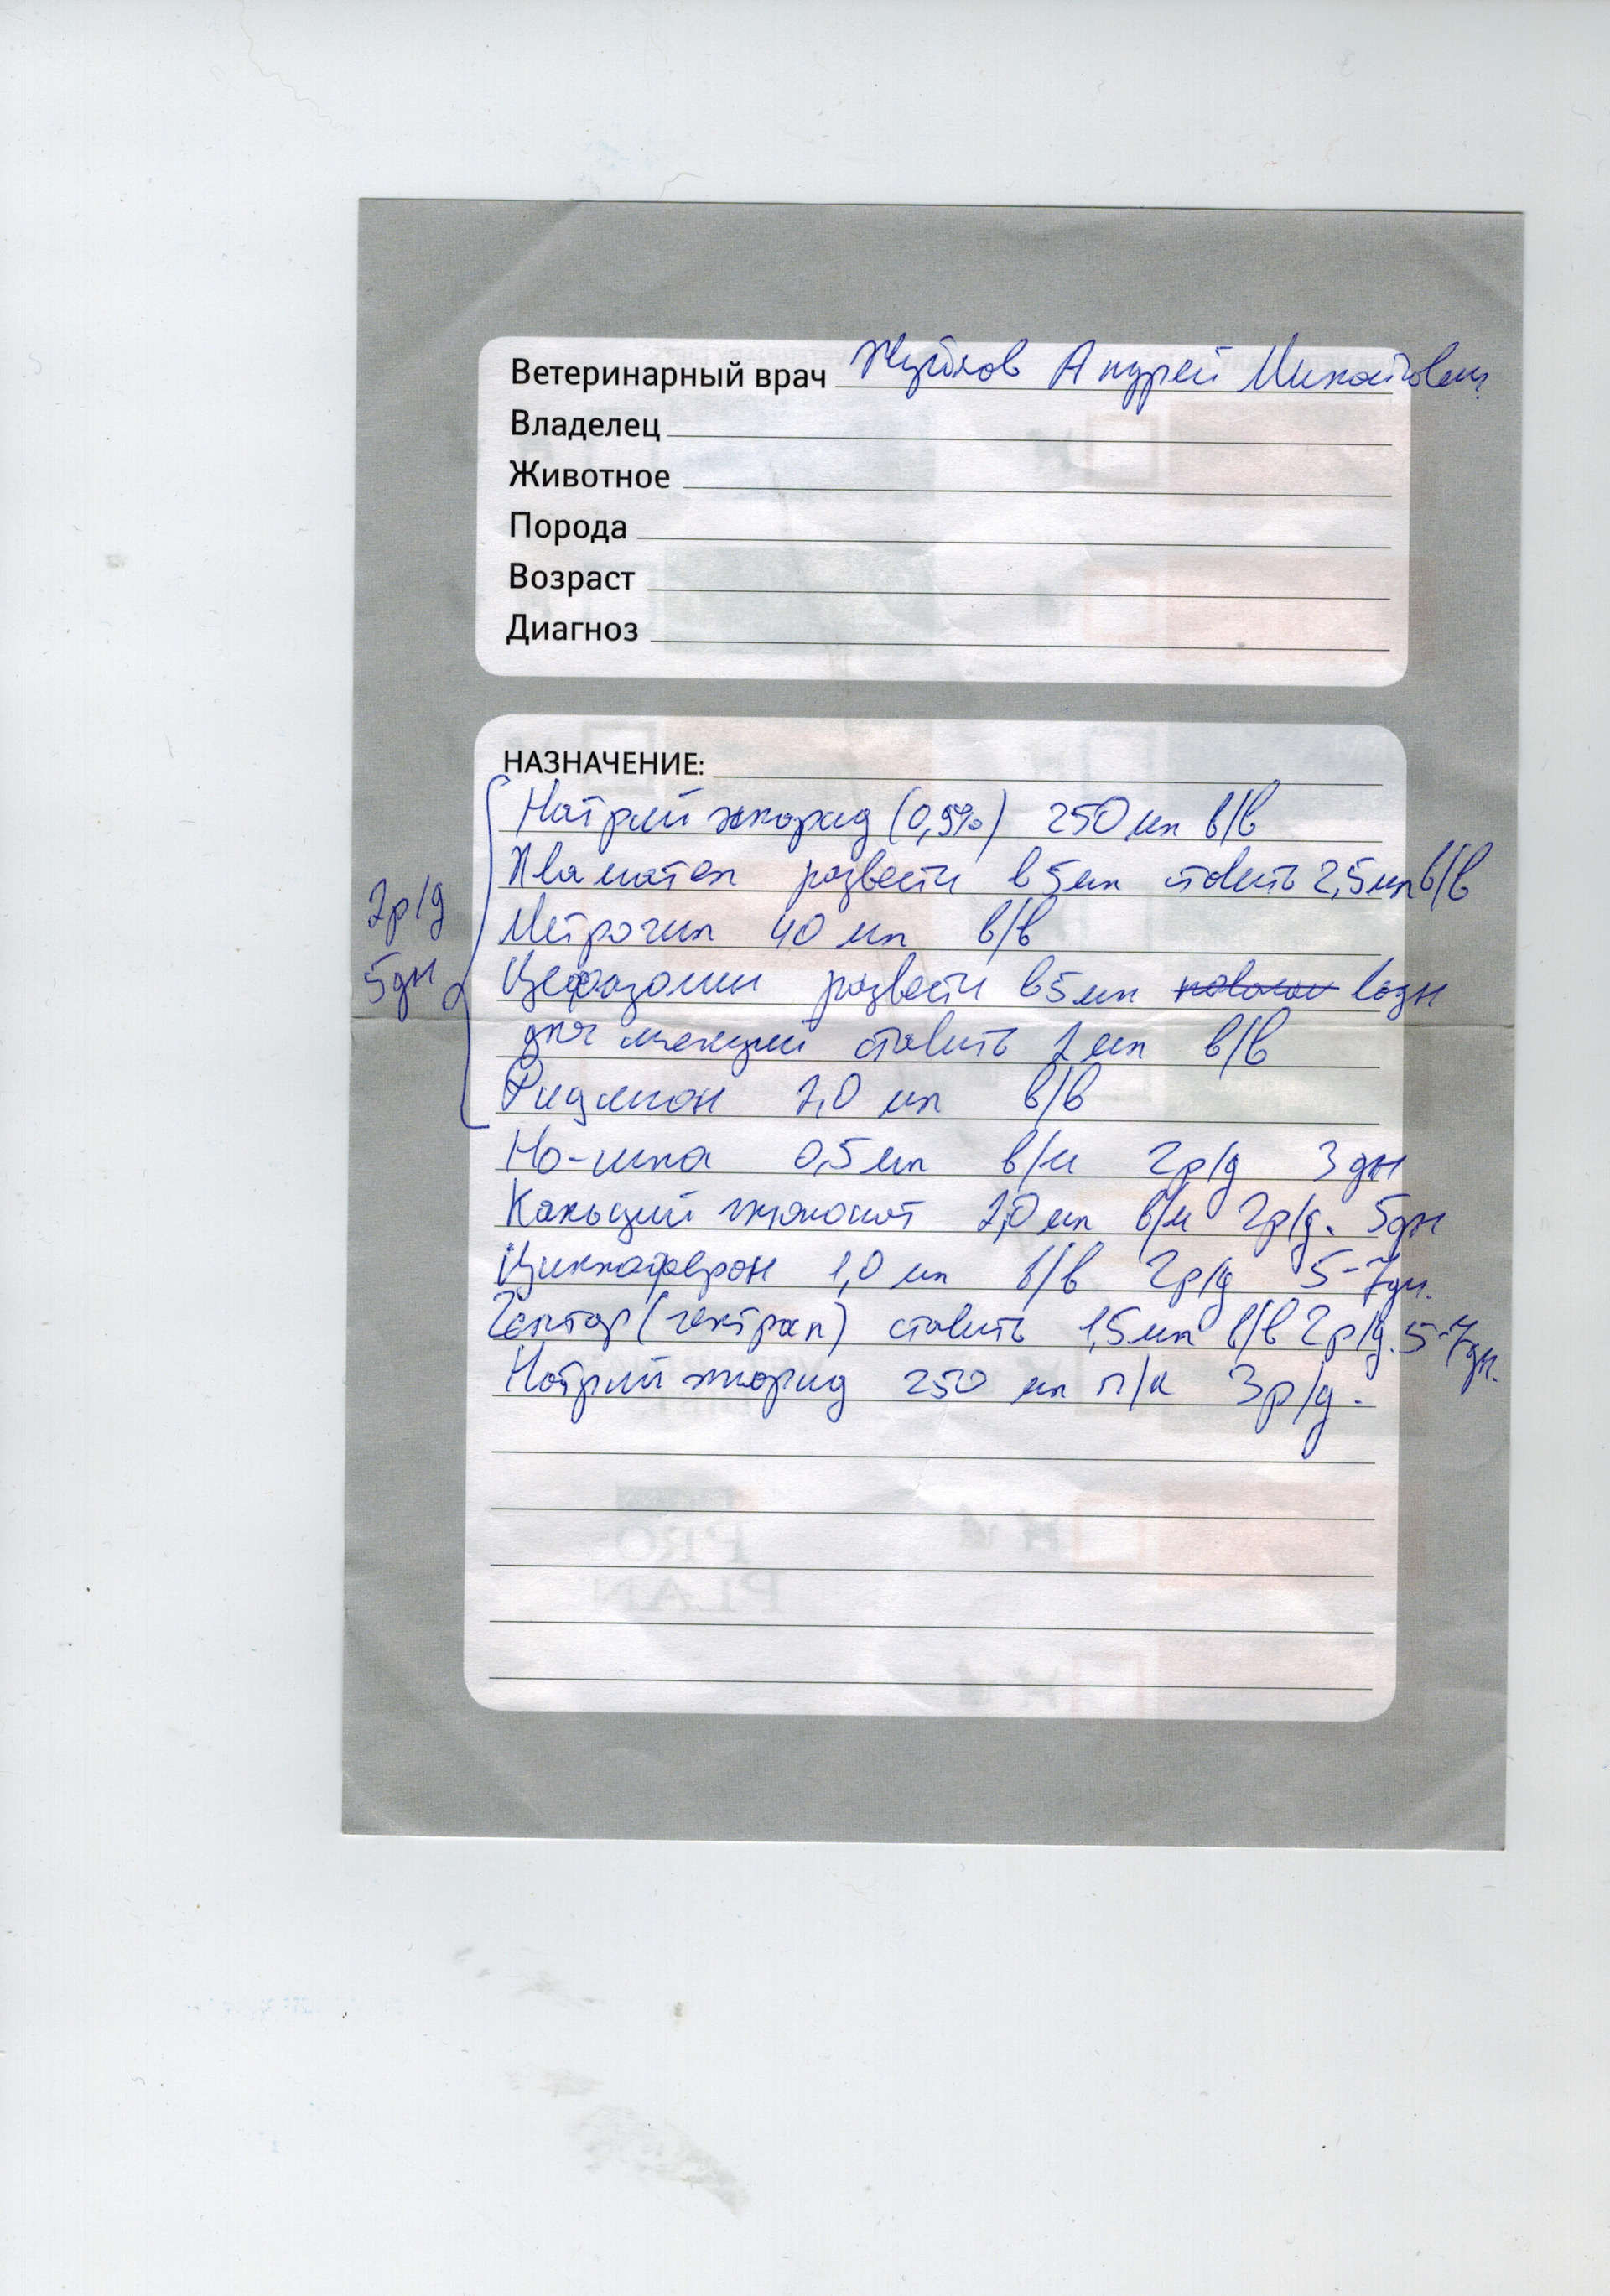 Ветеринарный врач Андрей Михайлович
Владелец
Животное
Порода
Возраст
Диагноз
НАЗНАЧЕНИЕ:
Натрий хлорид (0,9%) 250 мл в/в
Квамател развести в 5 мл ставить 2,5 мл в/в
Метрогил 40 мл в/в
2р/д
5дн
Цефазолин развести в 5 мл воды
для инъекций ставить 2 мл в/в
2,0 мл в/в
Но-шпа 0,5 мл в/м 2р/д 3 дн
Кальций глюконат 2,0 мл в/м 2р/д. 5дн
Циклоферон 1,0 мл в/в 2р/д 5-7дн.
Гептор (гептрал) ставить 1,5 мл в/в 2р/д. 5-7дн.
Натрий хлорид 250 мл п/к 3р/д.
PRO
PLAN